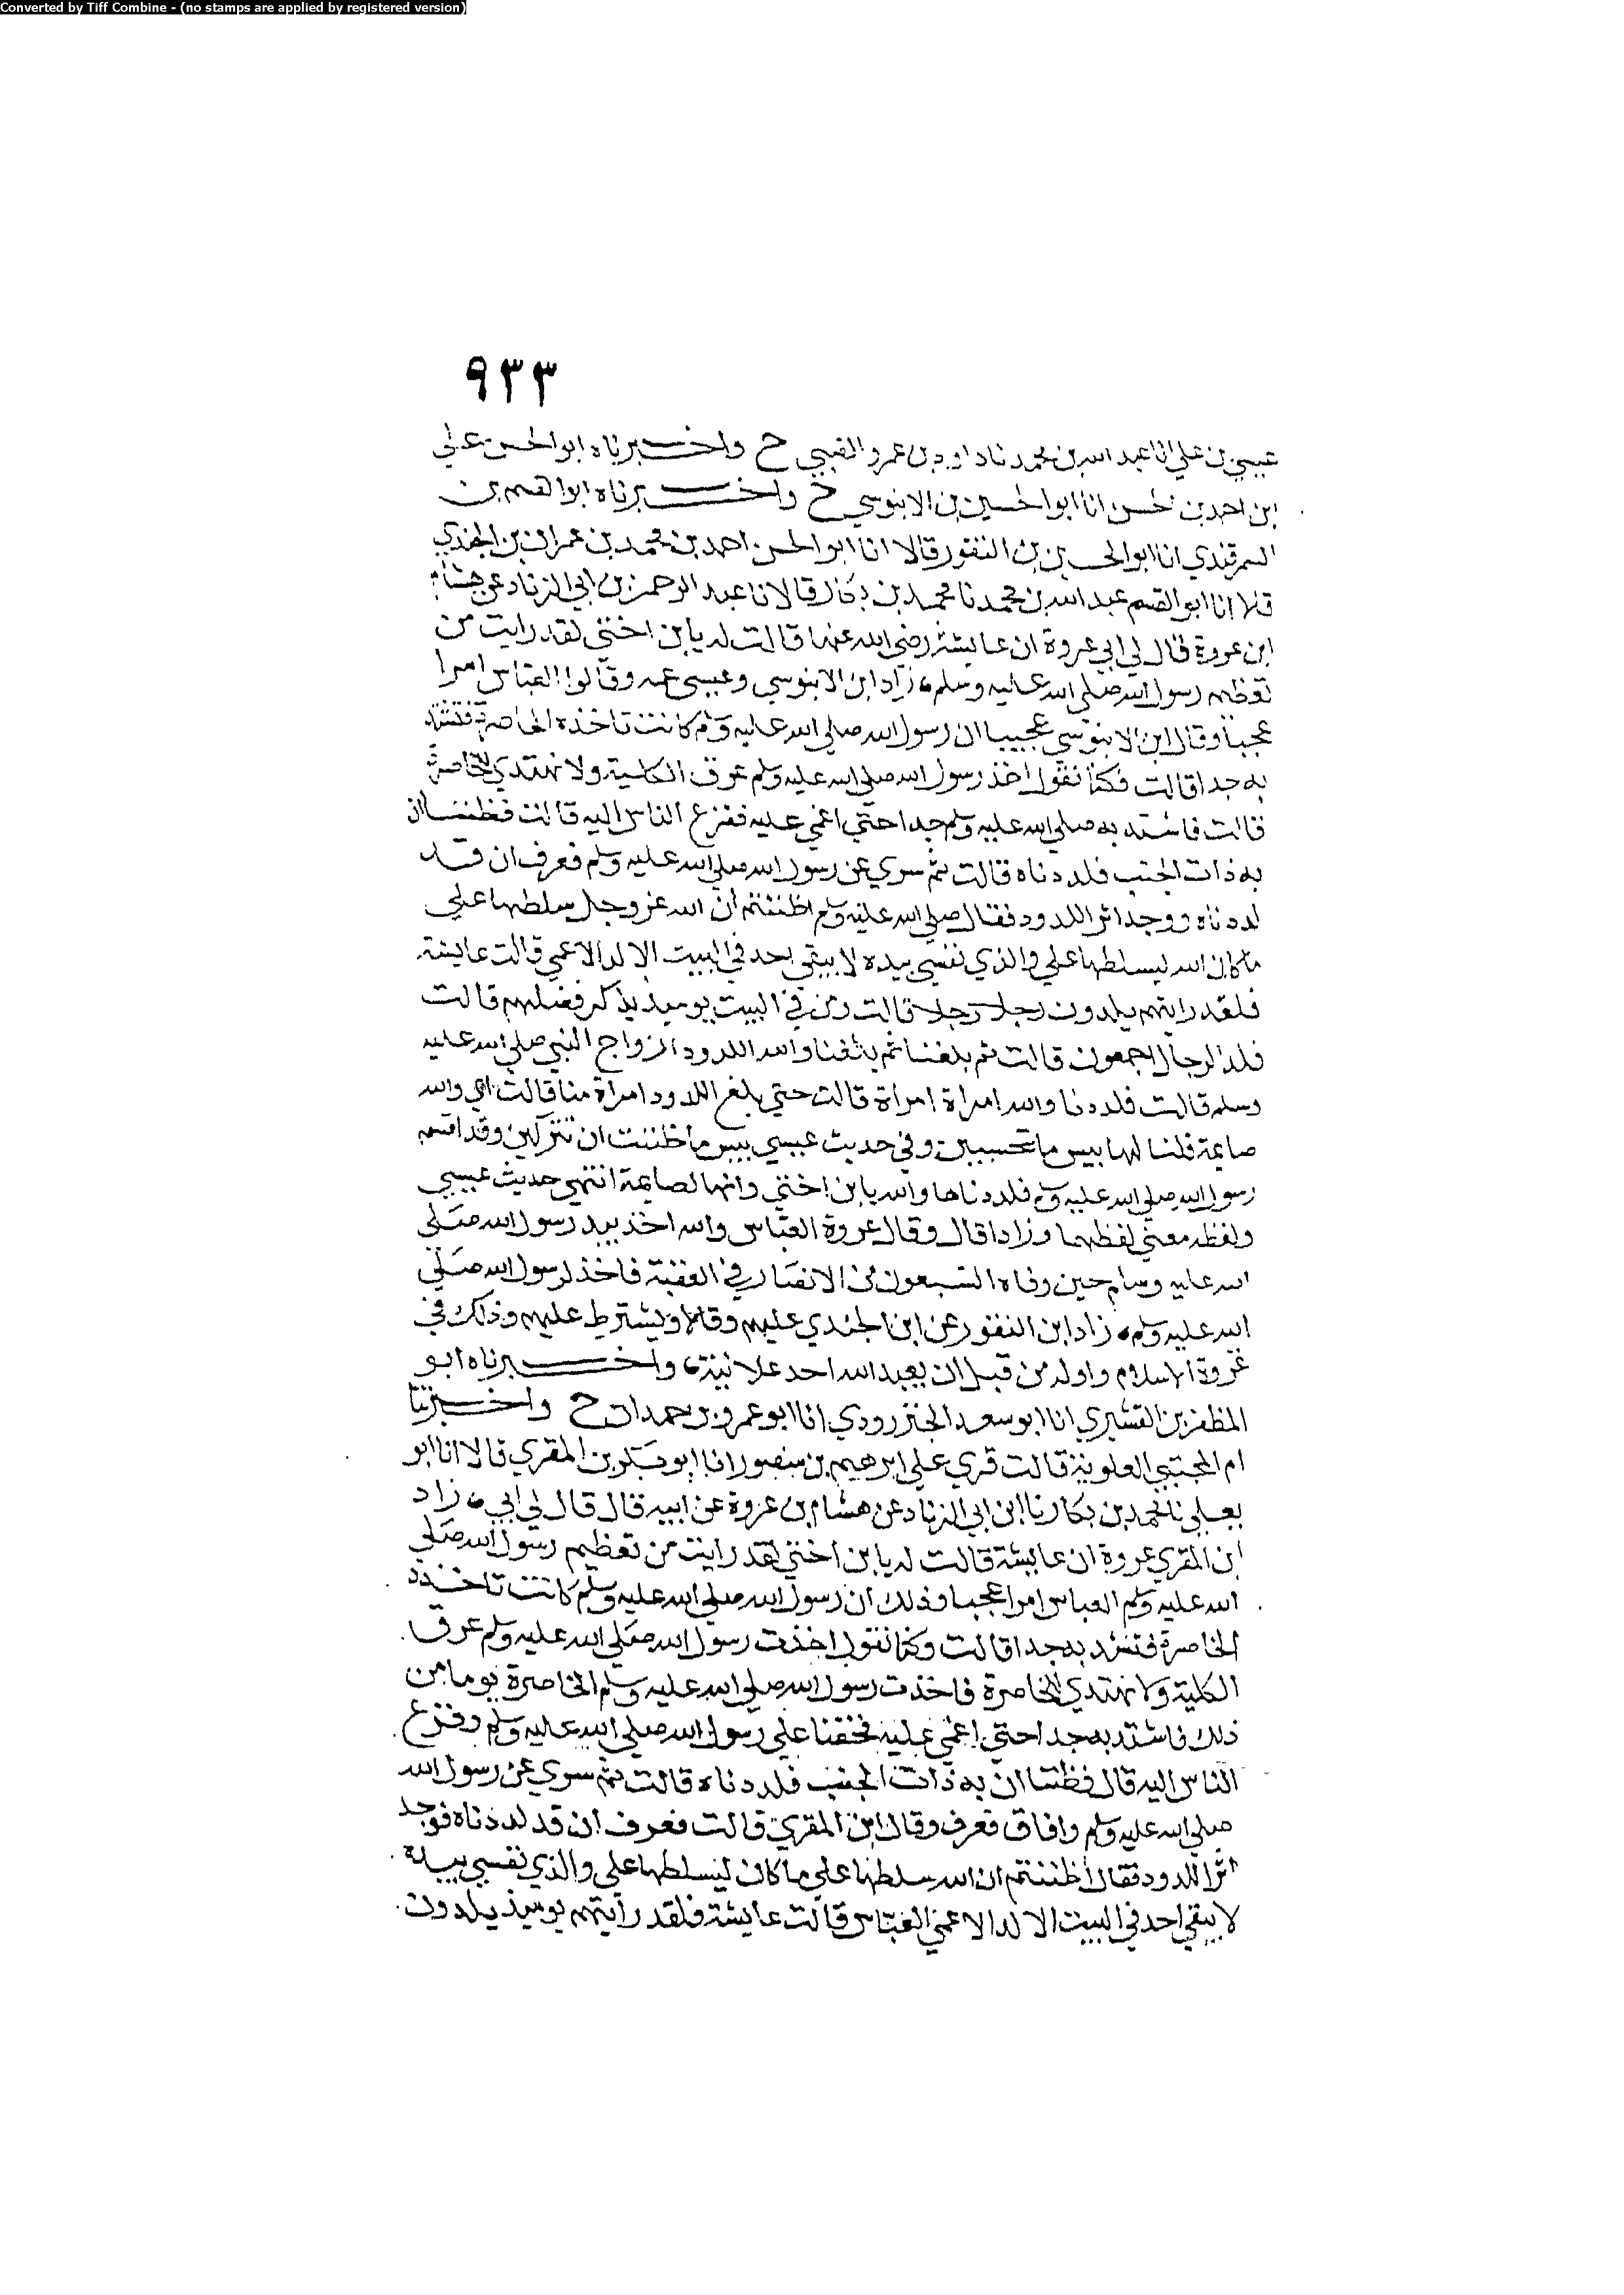 Converted by Tiff Combine - (no stamps are applied by registered version)
٩٣٣
عيسي بن علي انا عبد الله بن محمد نا داود بن عمرو الضبي ح واخبرناه ابو الحسن علي
ابن احمد بن الحسن انا ابو الحسين بن الابنوسي ح واخبرناه ابو القسم بن
السمرقندي انا ابو الحسين بن النقور قالا انا ابو الحسن احمد بن محمد بن عمران بن الجندي
قالا انا ابو القسم عبد الله بن محمد نا محمد بن بكار قالا نا عبد الرحمن بن ابي الزناد عن هشام
ابن عروة قال لي ابي عروة ان عايشة رضي الله عنها قالت له يا بن اختي لقد رايت من
تعظيم رسول الله صلي الله عليه وسلم زاد ابن الابنوسي وعيسي عمه وقالوا العباس امرا
عجبا وقال ابن الابنوسي عجيبا ان رسول الله صلي الله عليه وسلم كانت تاخذه الخاصرة فتشتد
به جدا قالت فكنا نقول اخذ رسول الله صلي الله عليه وسلم عرق الكلية ولا نهتدي للخاصرة
قالت فاشتد به صلي الله عليه وسلم جدا حتي اغمي عليه ففزع الناس اليه قالت فظننا ان
به ذات الجنب فلددناه قالت ثم سري عن رسول الله صلي الله عليه وسلم فعرف ان قد
لددناه ووجد اثر اللدود فقال صلي الله عليه وسلم اظننتم ان الله عز وجل سلطها علي
ما كان الله ليسلطها علي والذي نفسي بيده لا يبقي احد في البيت الا لد الا عمي قالت عايشة
فلقد رايتهم يلدون رجلا رجلا قالت ومن في البيت يوميذ يذكر فضلهم قالت
فلد الرجال اجمعون قالت ثم بلغنا ثم بلغنا والله اللدود ازواج النبي صلي الله عليه
وسلم قالت فلددنا والله امراة امراة قالت حتي بلغ اللدود امراة منا قالت اني والله
صايمة قلنا لها بيس ما تحسبين وفي حديث عيسي بيس ما ظننت ان نتركك وقد اقسم
رسول الله صلي الله عليه وسلم فلددناها والله يا بن اختي وانها لصايمة انتهي حديث عيسي
ولفظه معني لفظهما وزادا قال وقال عروة العباس والله اخذ بيد رسول الله صلي
الله عليه وسلم حين وفاه السبعون من الانصار في العقبة فاخذ لرسول الله صلي
الله عليه وسلم زاد ابن النقور عن ابن الجندي عليهم وقالا ويشترط عليهم وذلك في
غروة الاسلام واوله من قبل ان يعبد الله احد علانية واخبرناه ابو
المظفر بن القشيري انا ابو سعد الجنزرودي انا ابو عمرو بن حمدان ح واخبرتنا
ام المجتبي العلوية قالت قري علي ابرهيم بن منصور انا ابو بكر بن المقري قالا انا ابو
يعلي نا محمد بن بكار نا ابن ابي الزناد عن هشام بن عروة عن ابيه قال قال لي ابي زاد
ابن المقري عروة ان عايشة قالت له يا بن اختي لقد رايت من تعظيم رسول الله صلي
الله عليه وسلم العباس امرا عجبا وذلك ان رسول الله صلي الله عليه وسلم كانت تاخذه
الخاصرة فتشتد به جدا قالت وكنا نقول اخذت رسول الله صلي الله عليه وسلم عرق
الكلية ولا نهتدي للخاصرة فاخذت رسول الله صلي الله عليه وسلم الخاصرة يوما من
ذلك فاشتد به جدا حتي اغمي عليه فخفنا علي رسول الله صلي الله عليه وسلم وفزع
الناس اليه قال فظننا ان به ذات الجنب فلددناه قالت ثم سري عن رسول الله
صلي الله عليه وسلم وافاق فعرف وقال ابن المقري قالت فعرف ان قد لددناه فوجد
اثر اللدود فقال اظننتم ان الله سلطها علي ما كان ليسلطها علي والذي نفسي بيده
لا يبقي احد في البيت الا لد الا عمي العباس قالت عايشة فلقد رايتهم يوميذ يلدون